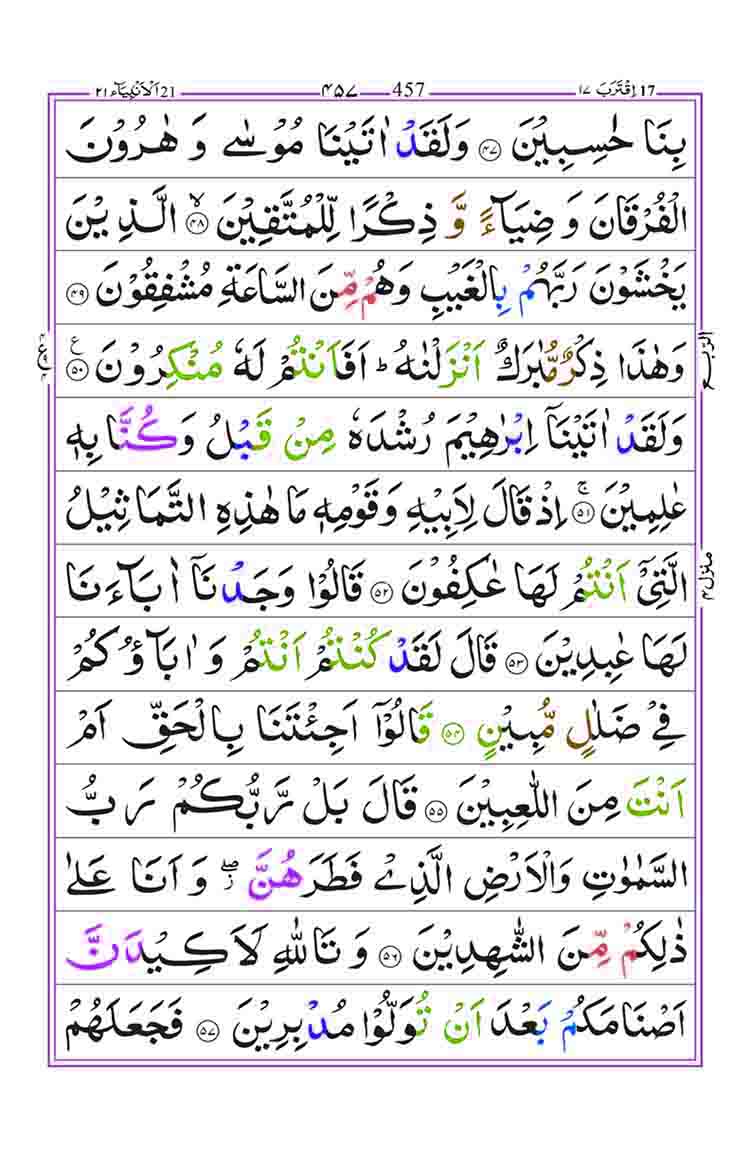 ۲۱ اَلْاَنْۢبِیَآء 21 ۴۵۷ 457 ۱۷ اِقْتَرَبَ 17
بِنَا حٰسِبِیْنَ ﴿۴۷﴾ وَلَقَدْ اٰتَیْنَا مُوْسٰی وَ هٰرُوْنَ
الْفُرْقَانَ وَ ضِیَآءً وَّ ذِكْرًا لِّلْمُتَّقِیْنَ ﴿۴۸﴾ۙ الَّذِیْنَ
یَخْشَوْنَ رَبَّهُمْ بِالْغَیْبِ وَهُمْ مِّنَ السَّاعَةِ مُشْفِقُوْنَ ﴿۴۹﴾
وَهٰذَا ذِكْرٌ مُّبٰرَكٌ اَنْزَلْنٰهُ ؕ اَفَاَنْتُمْ لَهٗ مُنْكِرُوْنَ ﴿۵۰﴾ ع
الربع
وَلَقَدْ اٰتَیْنَاۤ اِبْرٰهِیْمَ رُشْدَهٗ مِنْ قَبْلُ وَكُنَّا بِهٖ
عٰلِمِیْنَ ﴿۵۱﴾ۚ اِذْ قَالَ لِاَبِیْهِ وَقَوْمِهٖ مَا هٰذِهِ التَّمَاثِیْلُ
منزل ۴
الَّتِیْۤ اَنْتُمْ لَهَا عٰكِفُوْنَ ﴿۵۲﴾ قَالُوْا وَجَدْنَاۤ اٰبَآءَنَا
لَهَا عٰبِدِیْنَ ﴿۵۳﴾ قَالَ لَقَدْ كُنْتُمْ اَنْتُمْ وَ اٰبَآؤُكُمْ
فِیْ ضَلٰلٍ مُّبِیْنٍ ﴿۵۴﴾ قَالُوْۤا اَجِئْتَنَا بِالْحَقِّ اَمْ
اَنْتَ مِنَ اللّٰعِبِیْنَ ﴿۵۵﴾ قَالَ بَلْ رَّبُّكُمْ رَبُّ
السَّمٰوٰتِ وَالْاَرْضِ الَّذِیْ فَطَرَهُنَّ ۖز وَ اَنَا عَلٰی
ذٰلِكُمْ مِّنَ الشّٰهِدِیْنَ ﴿۵۶﴾ وَ تَاللّٰهِ لَاَكِیْدَنَّ
اَصْنَامَكُمْ بَعْدَ اَنْ تُوَلُّوْا مُدْبِرِیْنَ ﴿۵۷﴾ فَجَعَلَهُمْ